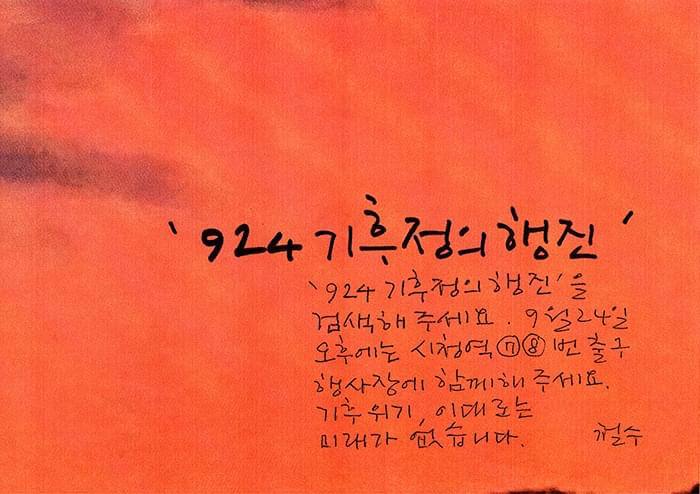 '924 기후정의 행진'
'924 기후정의 행진'을
검색해 주세요. 9월 24일
오후에는 시청역 ⑦⑧번 출구
행사장에 함께해 주세요.
기후 위기, 이대로는
미래가 없습니다. 철수